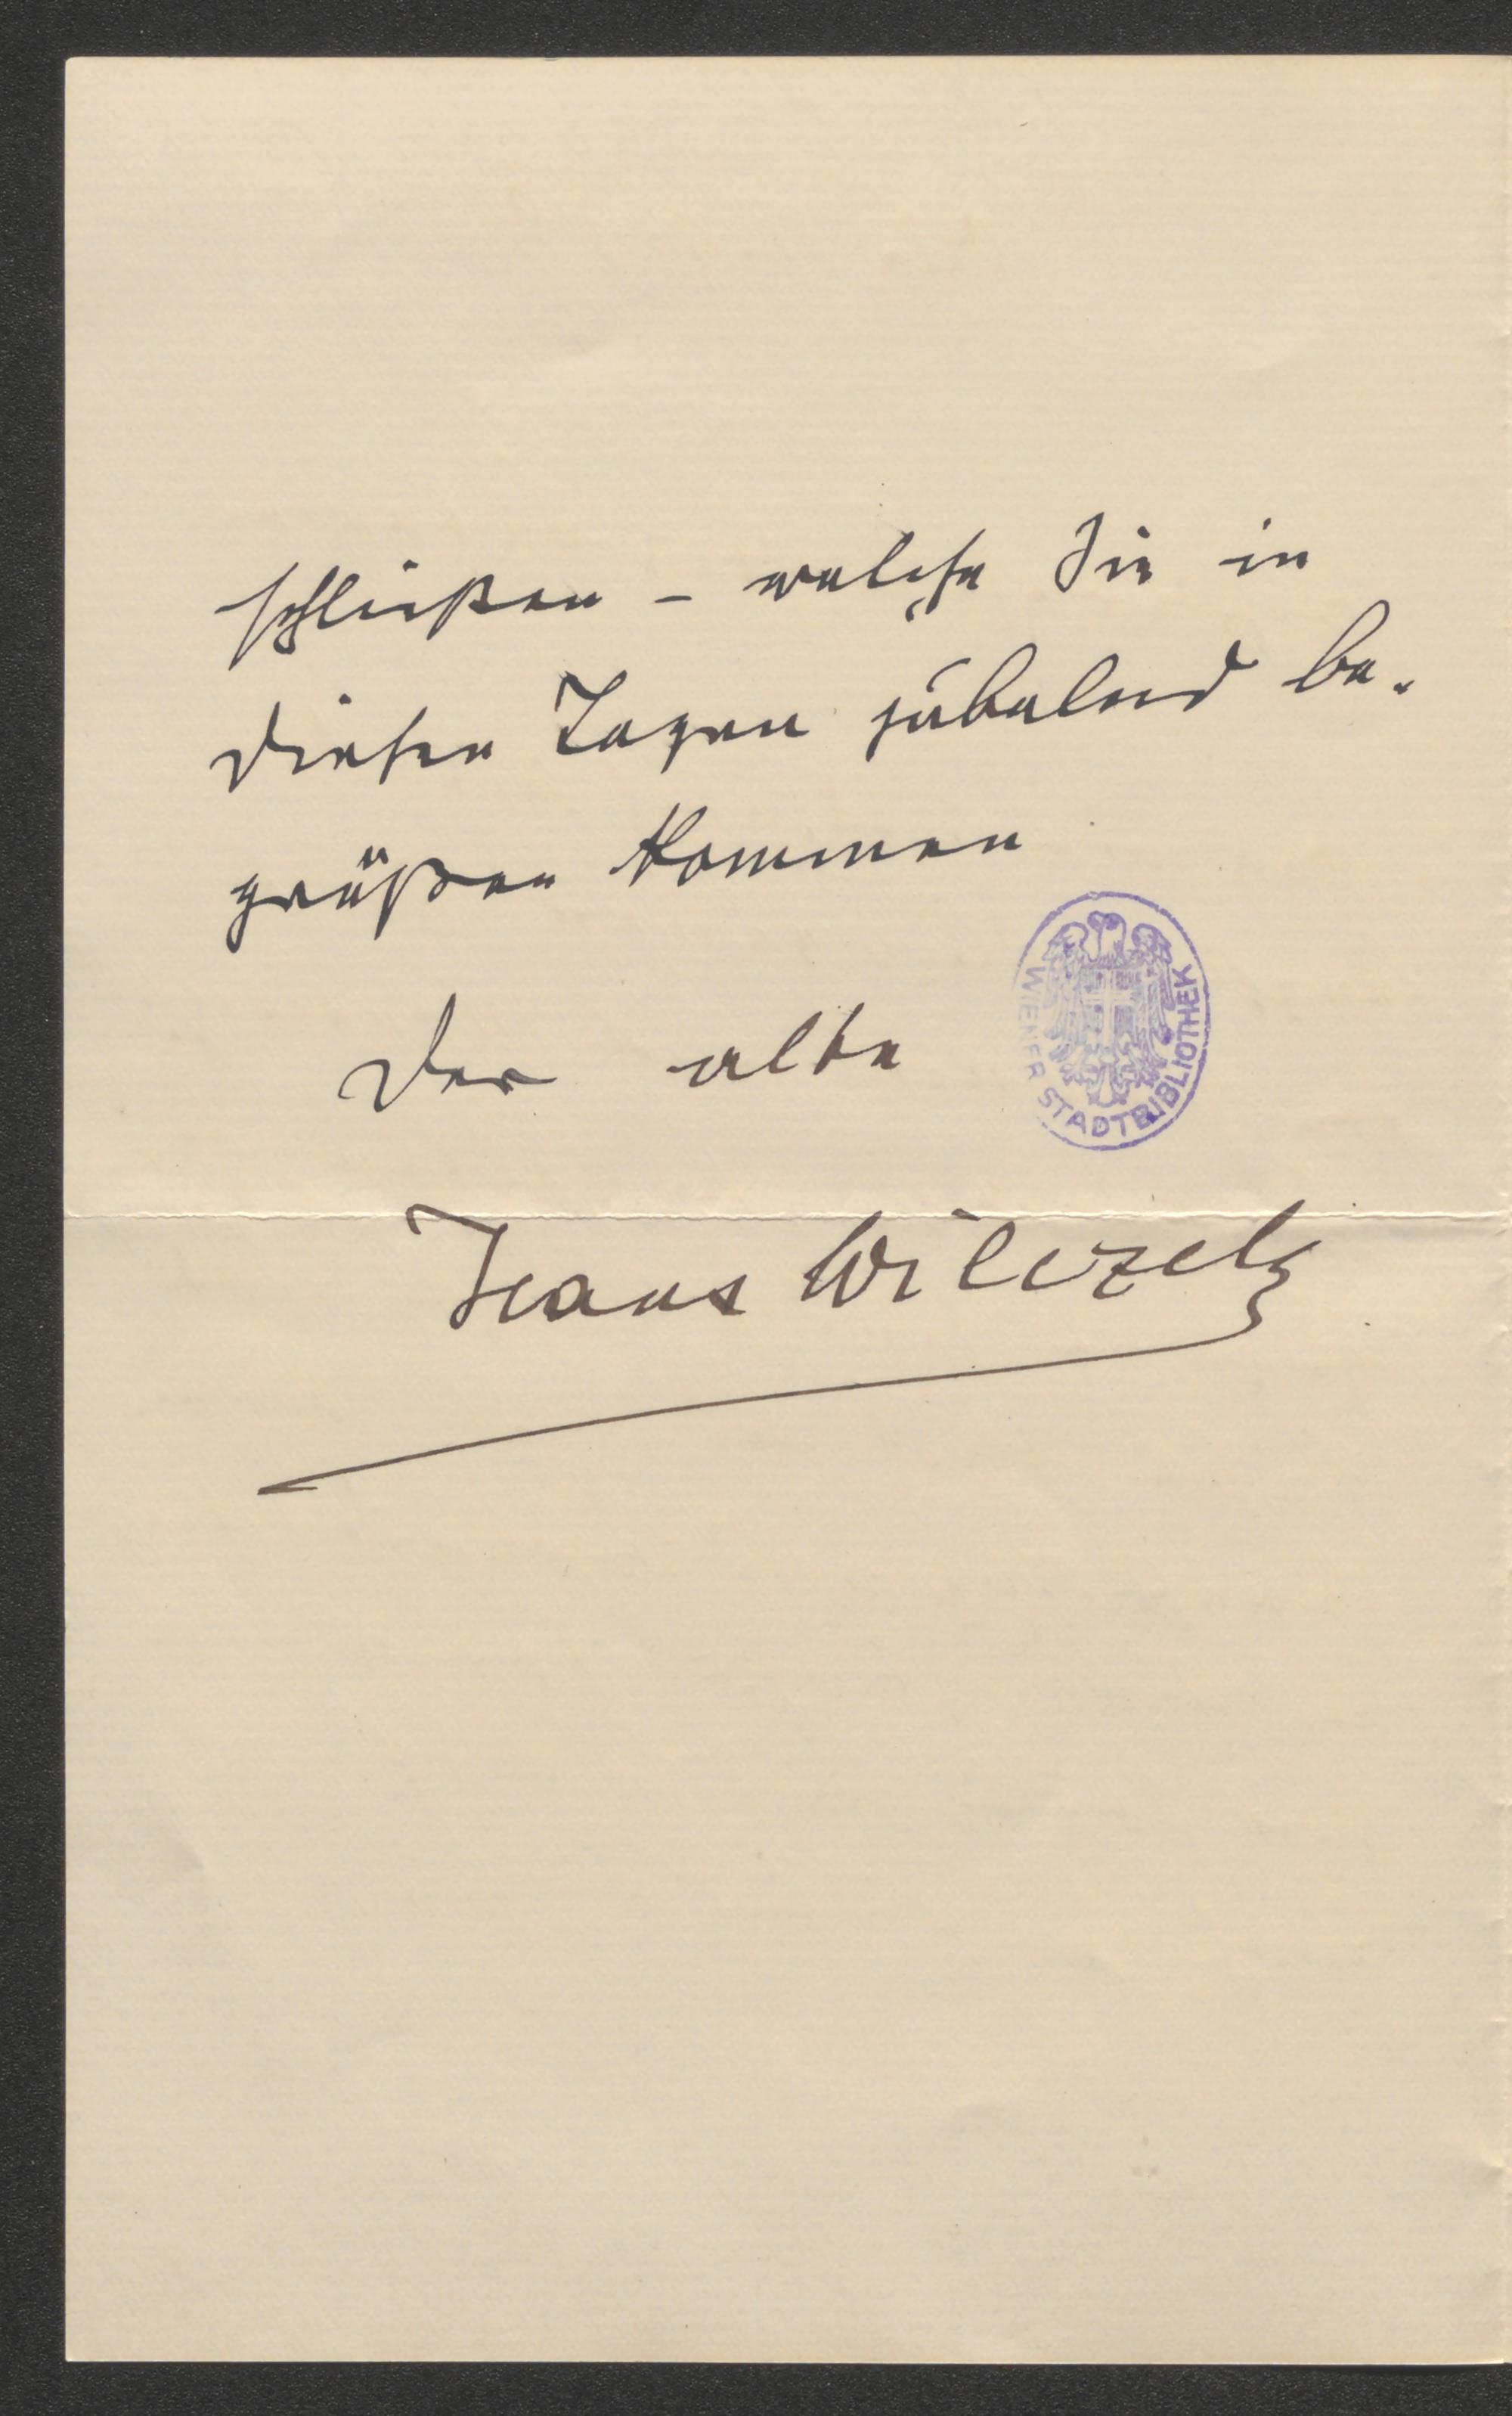 schließen – welche Sie in
diesen Tagen jubelnd be-
grüßen kommen
Der alte
WIENER STADTBIBLIOTHEK
Hans Wilczek